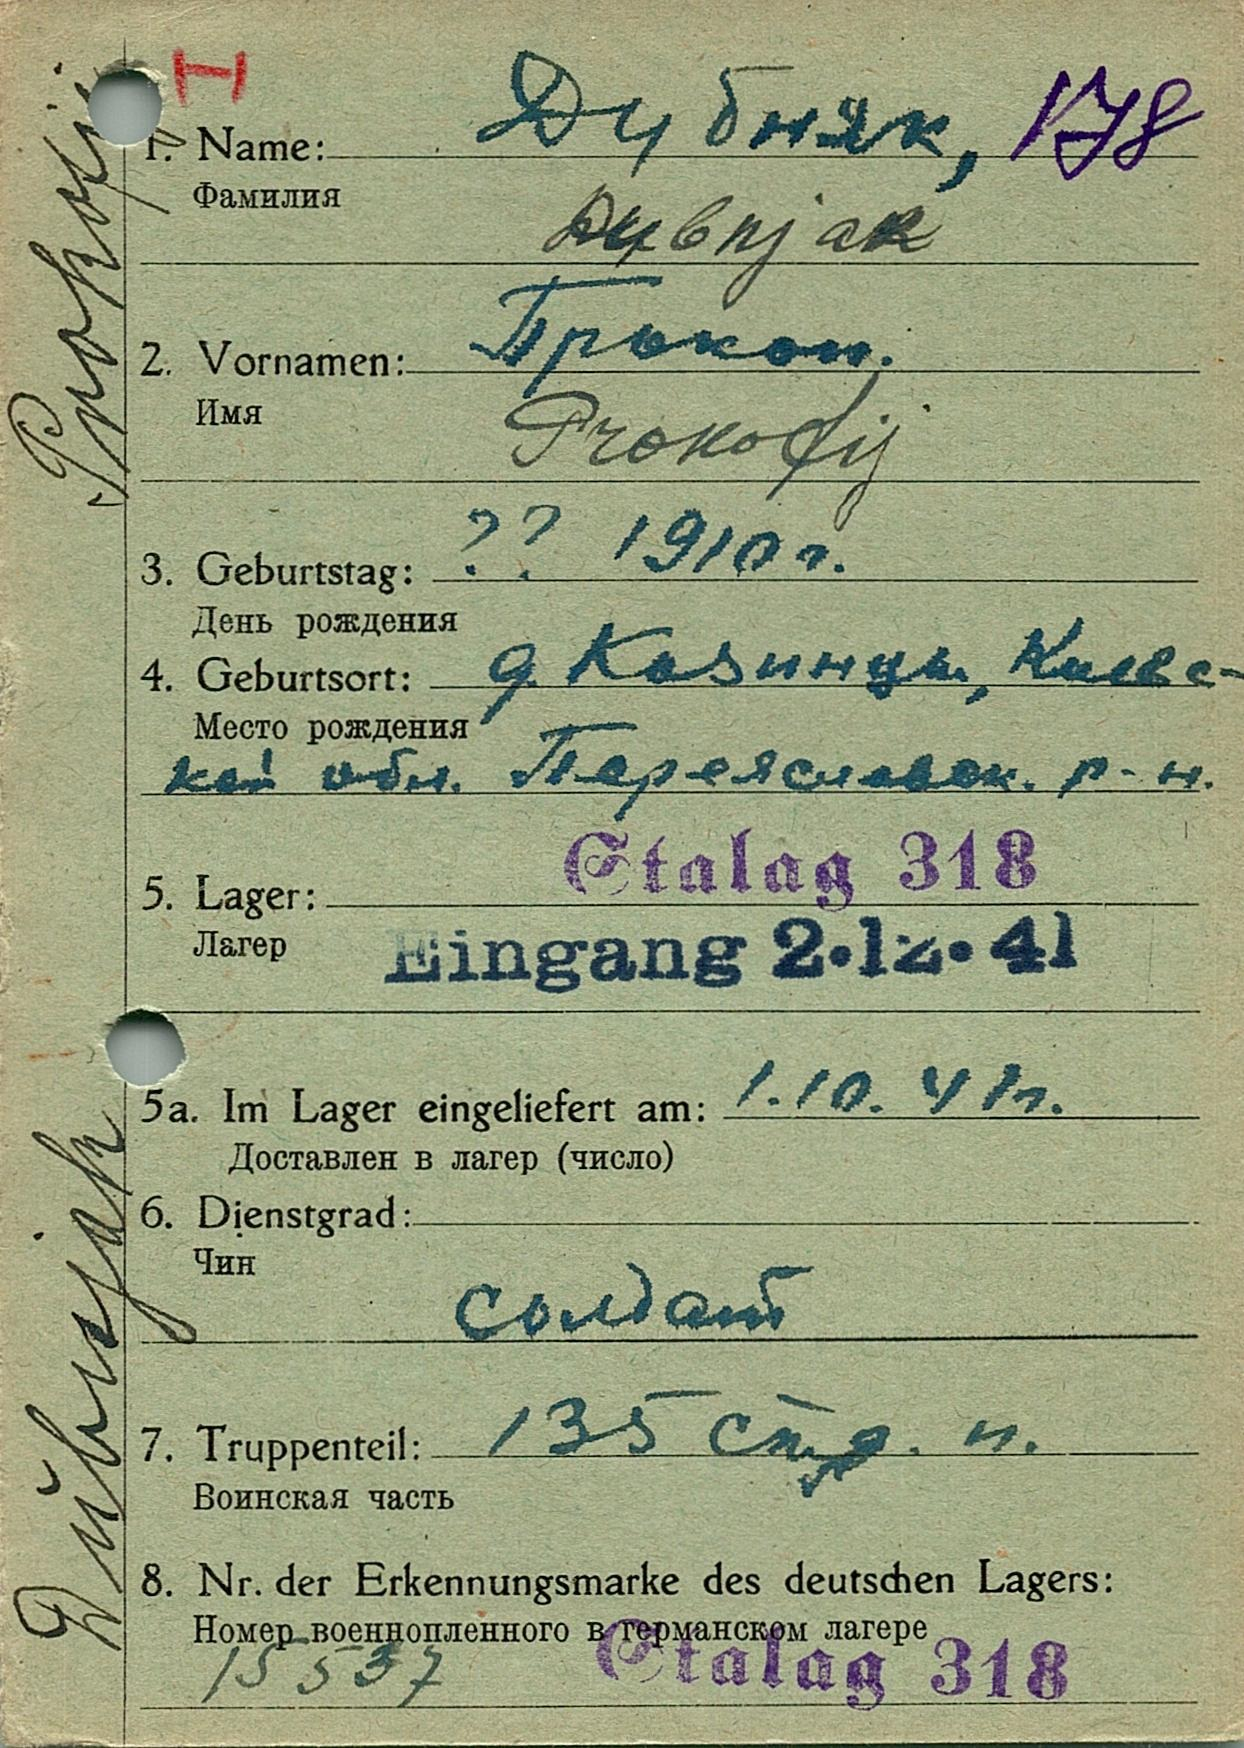 I
1. Name: Дубняк, 178
Фамилия
Dubnjak
2. Vornamen: Прокоп.
Имя
Prokofij
3. Geburtstag: ?? 1910 г.
День рождения
4. Geburtsort: д. Козинцы, Киевс-
Место рождения
кой обл. Переяславск. р-н.
Stalag 318
5. Lager:
Лагер
Eingang 2.12.41
5a. Im Lager eingeliefert am: 1.10.41г.
Доставлен в лагер (число)
6. Dienstgrad:
Чин
солдат
7. Truppenteil: 135 п.
Воинская часть
8. Nr. der Erkennungsmarke des deutschen Lagers:
Номер военнопленного в германском лагере
15537 Stalag 318
Dŭbnjak Prokofij